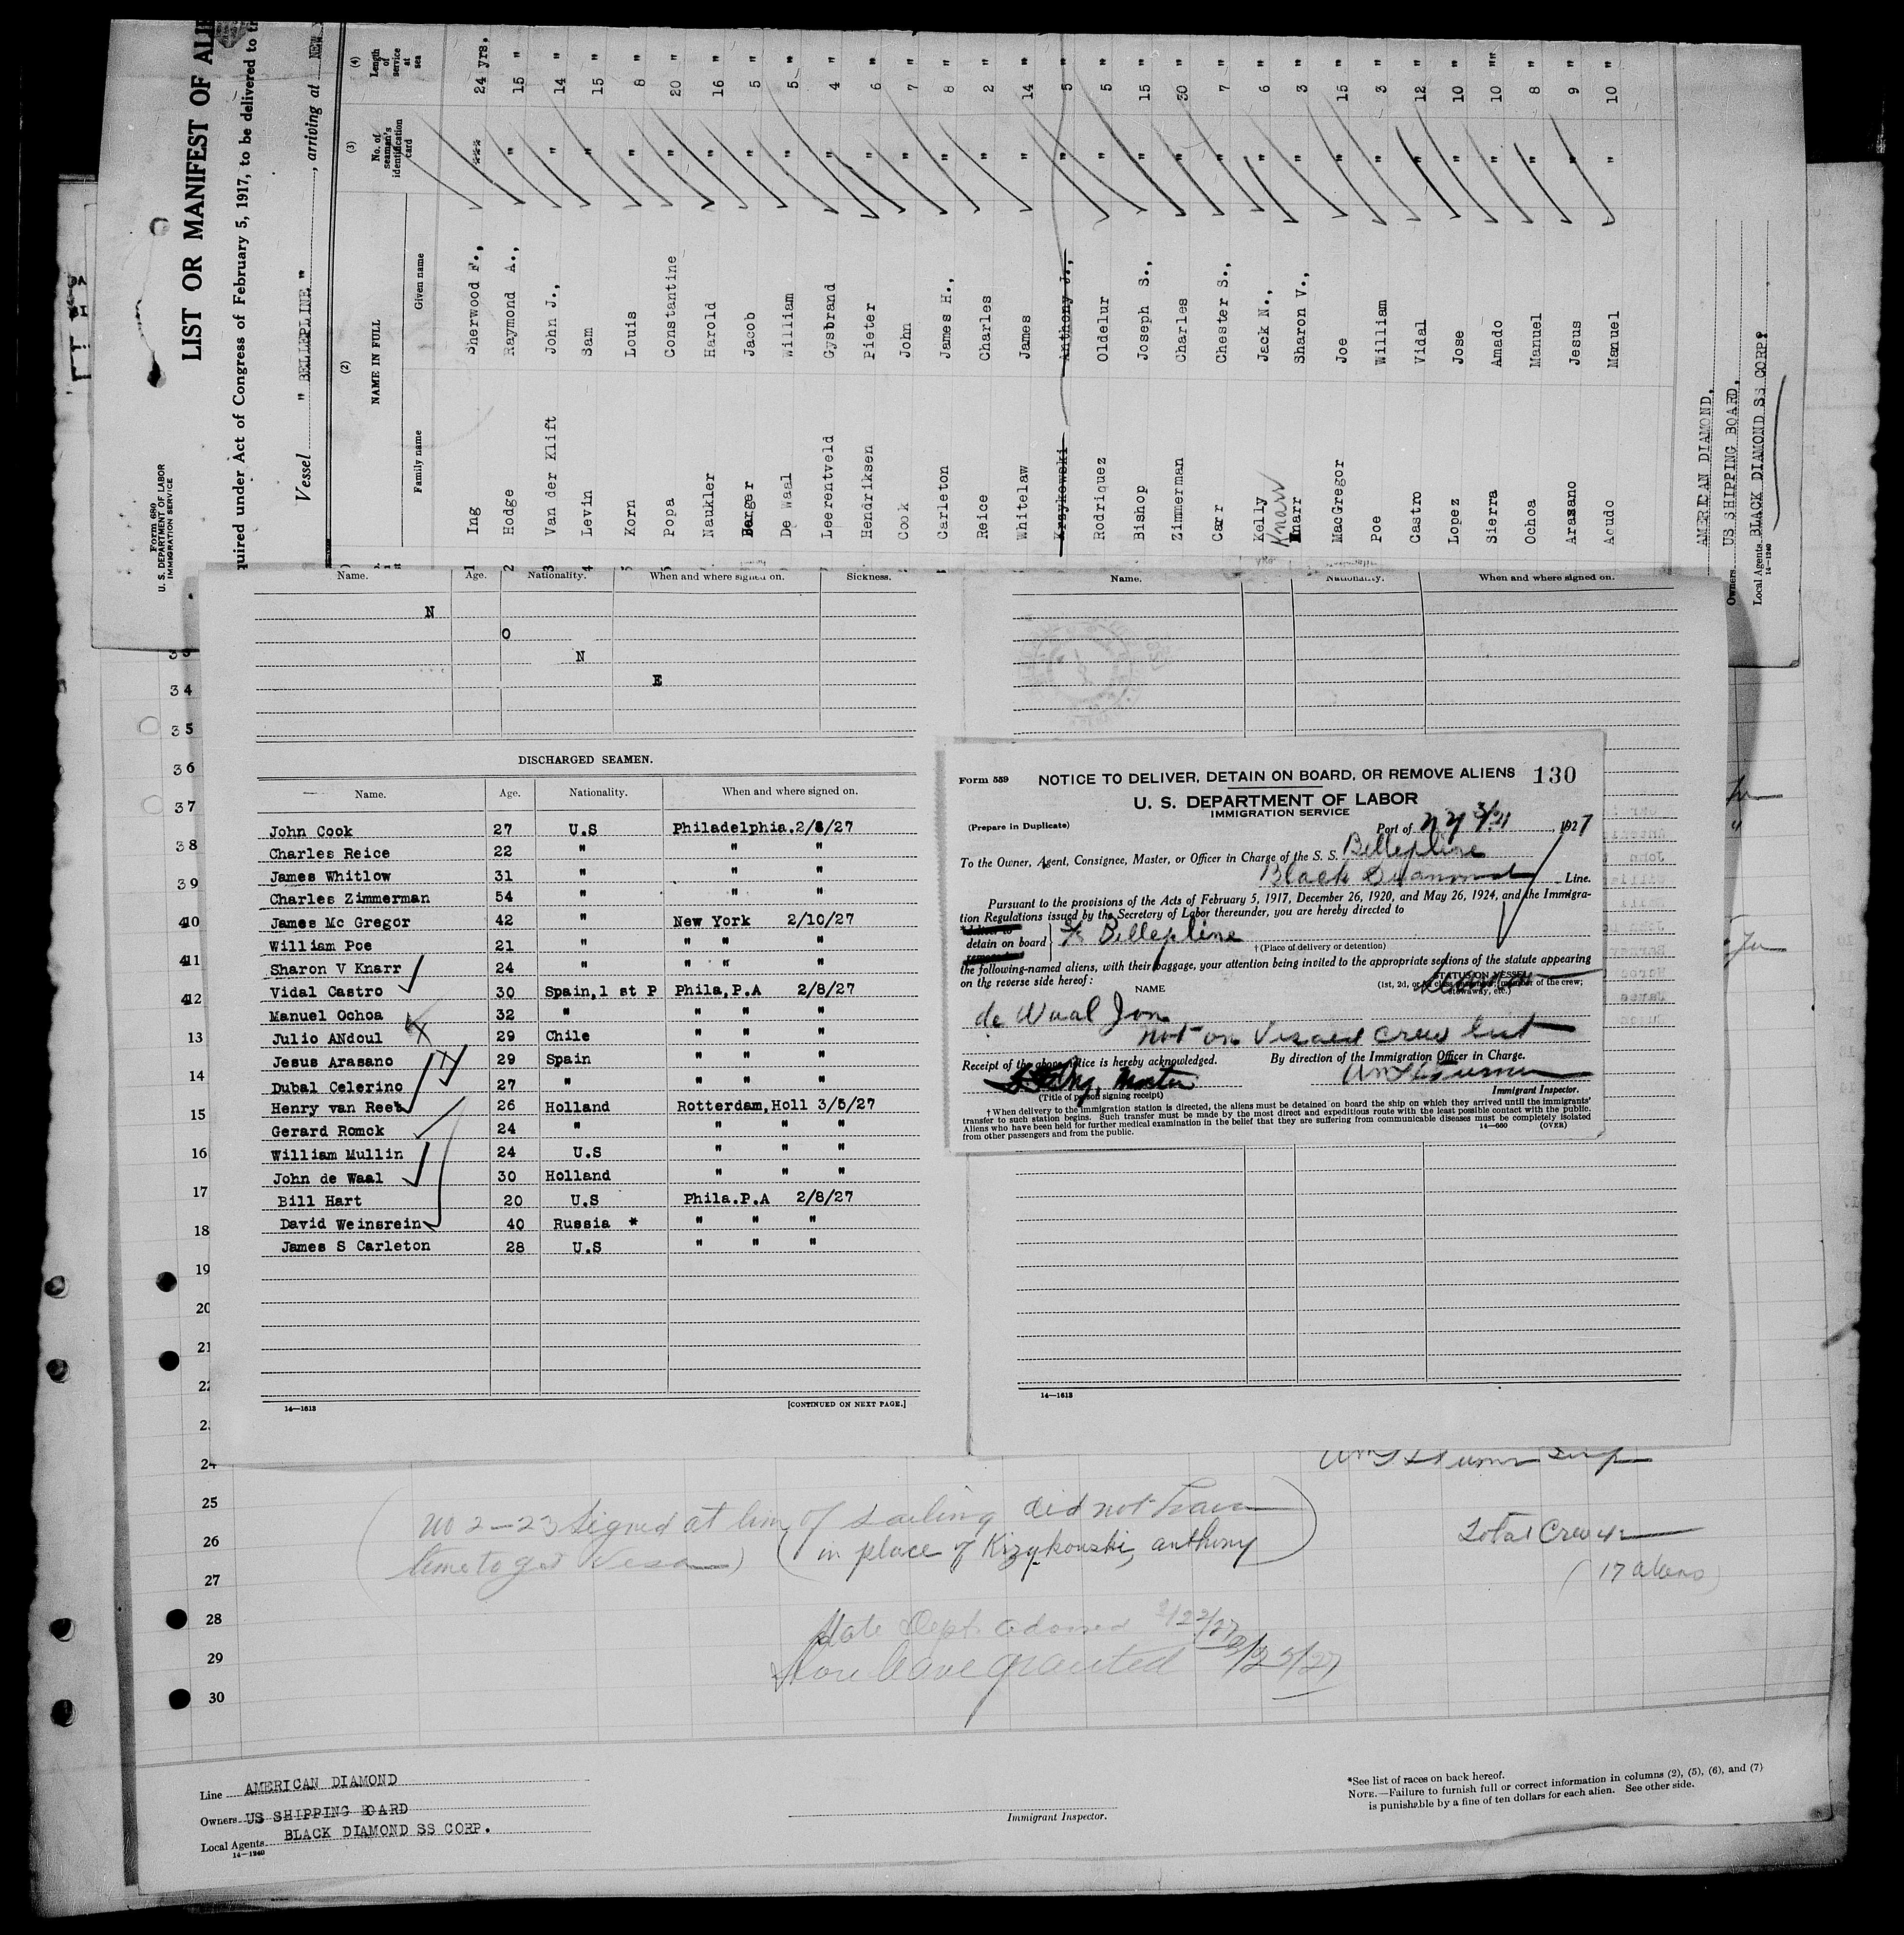 Form 680
U. S. DEPARTMENT OF LABOR
IMMIGRATION SERVICE
LIST OR MANIFEST OF
quired under Act of Congress of February 5, 1917, to be delivered to
Vessel " BELLEPLINE " , arriving at NEW
(2) (3) (4)
NAME IN FULL No. of seaman's identification card Length of service at sea
Family name Given name
1 Ing Sherwood F., 24 yrs.
2 Hodge Raymond A., " 15 "
3 Van der Klift John J., " 14 "
4 Levin Sam " 15 "
Korn Louis " 8 "
Popa Constantine " 20 "
Naukler Harold " 16 "
Berger Jacob " 5 "
De Waal William " 5 "
Leerentveld Gysbrand " 4 "
Hendriksen Pieter " 6 "
Cook John " 7 "
Carleton James H., " 8 "
Reice Charles " 2 "
Whitelaw James " 14 "
Krzykowski Anthony J., " 5 "
Rodriquez Oldelur " 5 "
Bishop Joseph S., " 15 "
Zimmerman Charles " 30 "
Carr Chester S., " 7 "
Kelly Jack N., " 6 "
Knarr
Knarr Sharon V., " 3 "
MacGregor Joe " 15 "
Poe William " 3 "
Castro Vidal " 12 "
Lopez Jose " 10 "
Sierra Amado " 10 ""
Ochoa Manuel " 8 "
Arasano Jesus " 9 "
Aoudo Manuel " 10 "
AMERICAN DIAMOND,
Owners US SHIPPING BOARD,
Local Agents BLACK DIAMOND SS CORP.
14—1240
Name. Age. Nationality. When and where signed on. Sickness.
N
O
N
E
DISCHARGED SEAMEN.
Name. Age. Nationality. When and where signed on.
John Cook 27 U.S Philadelphia.2/8/27
Charles Reice 22 " " "
James Whitlow 31 " " "
Charles Zimmerman 54 " " "
James Mc Gregor 42 " New York 2/10/27
William Poe 21 " " " "
Sharon V Knarr 24 " " " "
Vidal Castro 30 Spain,1 st P Phila,P.A 2/8/27
Manuel Ochoa 32 " " " "
Julio ANdoul 29 Chile " " "
Jesus Arasano 29 Spain " " "
Dubal Celerino 27 " " " "
Henry van Reet 26 Holland Rotterdam,Holl 3/5/27
Gerard Romck 24 " " " "
William Mullin 24 U.S " " "
John de Waal 30 Holland " " "
Bill Hart 20 U.S Phila.P.A 2/8/27
David Weinsrein 40 Russia * " " "
James S Carleton 28 U.S " " "
14—1613 [CONTINUED ON NEXT PAGE.]
Name. Nationality. When and where signed on.
14—1613
Form 559 NOTICE TO DELIVER, DETAIN ON BOARD, OR REMOVE ALIENS 130
U. S. DEPARTMENT OF LABOR
IMMIGRATION SERVICE
(Prepare in Duplicate) Port of N Y 1927
To the Owner, Agent, Consignee, Master, or Officer in Charge of the S. S. Bellepline
Black Diamond Line.
Pursuant to the provisions of the Acts of February 5, 1917, December 26, 1920, and May 26, 1924, and the Immigra-
tion Regulations issued by the Secretary of Labor thereunder, you are hereby directed to
detain on board Bellepline
† (Place of delivery or detention)
the following-named aliens, with their baggage, your attention being invited to the appropriate sections of the statute appearing
on the reverse side hereof:
NAME STATUS ON VESSEL
(1st, 2d, or 3d class passenger, member of the crew; stowaway, etc.)
de Waal Jon
not on Visaed Crew list
Receipt of the above notice is hereby acknowledged. By direction of the Immigration Officer in Charge.
Master
(Title of person signing receipt) Immigrant Inspector.
† When delivery to the immigration station is directed, the aliens must be detained on board the ship on which they arrived until the immigrants'
transfer to such station begins. Such transfer must be made by the most direct and expeditious route with the least possible contact with the public.
Aliens who have been held for further medical examination in the belief that they are suffering from communicable diseases must be completely isolated
from other passengers and from the public. 14—660 (OVER)
34
35
36
37
38
39
10
11
12
13
14
15
16
17
18
19
20
21
22
24
25
26
27
28
29
30
No 2-23 signed at time of sailing did not have
time to get Visa) (in place of Kizykouski, anthony)
Total Crew
(17 aliens)
State Dept.
Shore leave granted
Line AMERICAN DIAMOND
Owners US SHIPPING BOARD
Local Agents BLACK DIAMOND SS CORP.
14—1240
Immigrant Inspector.
*See list of races on back hereof.
NOTE.—Failure to furnish full or correct information in columns (2), (5), (6), and (7)
is punishable by a fine of ten dollars for each alien. See other side.